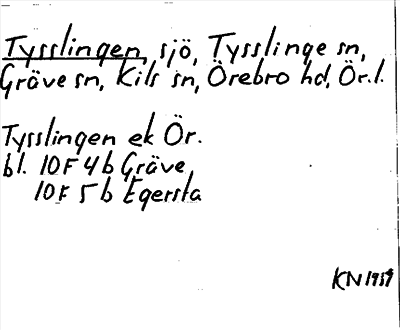 Tysslingen, sjö, Tysslinge sn,
Gräve sn, Kils sn, Örebro hd, Ör.l.
Tysslingen ek Ör.
bl. 10F 4b Gräve
10F 5b Egersta
KN 1959